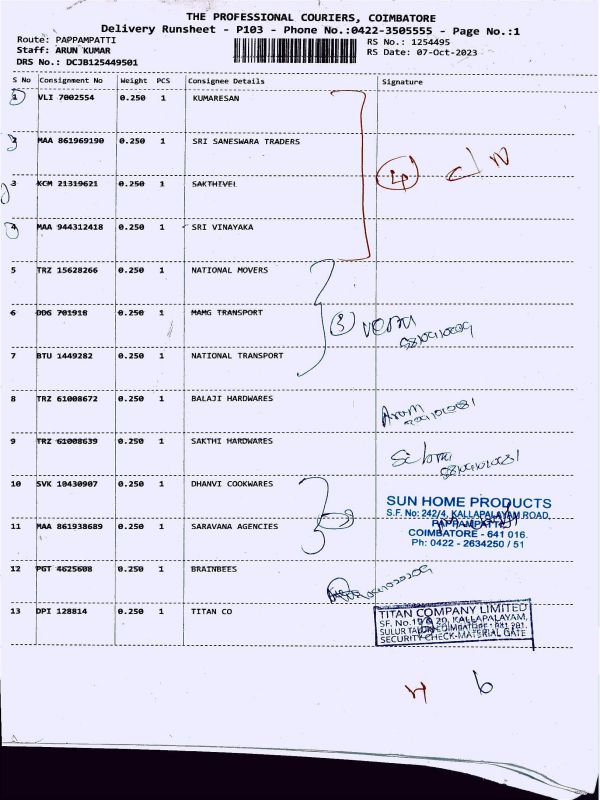 THE PROFESSIONAL COURIERS, COIMBATORE
Delivery Runsheet - P103 - Phone No.:0422-3505555 - Page No.:1
Route: PAPPAMPATTI RS No.: 1254495
Staff: ARUN KUMAR RS Date: 07-Oct-2023
DRS No.: DCJB125449501
S No Consignment No Weight PCS Consignee Details Signature
1 VLI 7002554 0.250 1 KUMARESAN
2 MAA 861969190 0.250 1 SRI SANESWARA TRADERS
3 KCM 21319621 0.250 1 SAKTHIVEL
4 MAA 944312418 0.250 1 SRI VINAYAKA
5 TRZ 15628266 0.250 1 NATIONAL MOVERS
6 DDG 701918 0.250 1 MAMG TRANSPORT
3
7 BTU 1449282 0.250 1 NATIONAL TRANSPORT
8 TRZ 61008672 0.250 1 BALAJI HARDWARES
9 TRZ 61008639 0.250 1 SAKTHI HARDWARES
10 SVK 10430907 0.250 1 DHANVI COOKWARES
SUN HOME PRODUCTS
S.F. No: 242/4, KALLAPALAYAM ROAD,
PAPPAMPATTI,
11 MAA 861938689 0.250 1 SARAVANA AGENCIES
COIMBATORE - 641 016.
Ph: 0422 - 2634250 / 51
12 PGT 4625608 0.250 1 BRAINBEES
13 DPI 128814 0.250 1 TITAN CO
TITAN COMPANY LIMITED
SF. No.19 & 20, KALLAPALAYAM,
SULUR TALUK COIMBATORE
SECURITY CHECK-MATERIAL GATE